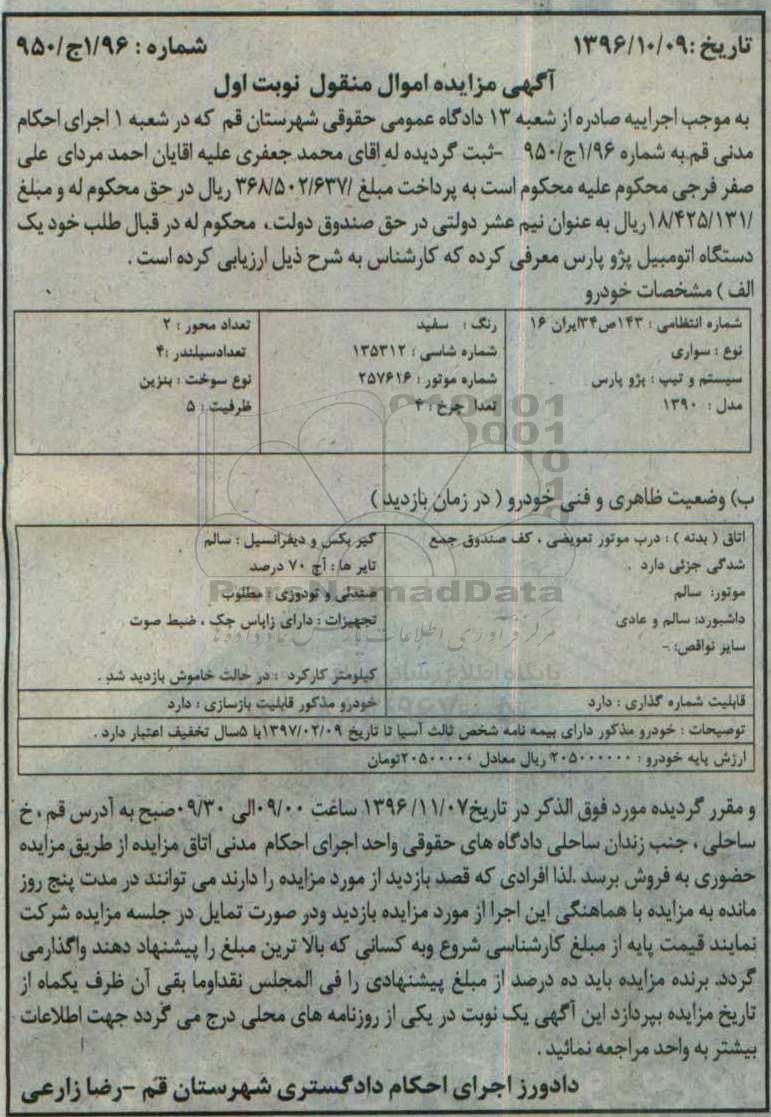 تاریخ :۱۳۹۶/۱۰/۰۹ شماره : ۱/۹۶ج/۹۵۰
آگهی مزایده اموال منقول نوبت اول
به موجب اجراییه صادره از شعبه ۱۳ دادگاه عمومی حقوقی شهرستان قم که در شعبه ۱ اجرای احکام
مدنی قم به شماره ۱/۹۶ج/۹۵۰ -ثبت گردیده له اقای محمد جعفری علیه اقایان احمد مردای علی
صفر فرجی محکوم علیه محکوم است به پرداخت مبلغ /۳۶۸/۵۰۲/۶۳۷ ریال در حق محکوم له و مبلغ
/۱۸/۴۲۵/۱۳۱ریال به عنوان نیم عشر دولتی در حق صندوق دولت ، محکوم له در قبال طلب خود یک
دستگاه اتومبیل پژو پارس معرفی کرده که کارشناس به شرح ذیل ارزیابی کرده است .
الف ) مشخصات خودرو
شماره انتظامی : ۱۴۳ص۳۴ایران ۱۶
نوع : سواری
سیستم و تیپ : پژو پارس
مدل : ۱۳۹۰
رنگ : سفید
شماره شاسی : ۱۳۵۳۱۲
شماره موتور : ۲۵۷۶۱۶
تعدا چرخ : ۴
تعداد محور : ۲
تعدادسیلندر :۴
نوع سوخت : بنزین
ظرفیت : ۵
ب) وضعیت ظاهری و فنی خودرو ( در زمان بازدید )
اتاق ( بدنه ) : درب موتور تعویضی ، کف صندوق جمع
شدگی جزئی دارد .
موتور: سالم
داشبورد: سالم و عادی
سایر نواقص: -
گیر بکس و دیفرانسیل : سالم
تایر ها : آج ۷۰ درصد
صندلی و تودوزی : مطلوب
تجهیزات : دارای زاپاس جک ، ضبط صوت
کیلومتر کارکرد : در حالت خاموش بازدید شد .
قابلیت شماره گذاری : دارد
خودرو مذکور قابلیت بازسازی : دارد
توضیحات : خودرو مذکور دارای بیمه نامه شخص ثالث آسیا تا تاریخ ۱۳۹۷/۰۲/۰۹با ۵سال تخفیف اعتبار دارد .
ارزش پایه خودرو : ۲۰۵۰۰۰۰۰۰ ریال معادل ۲۰۵۰۰۰۰۰تومان
ParsNamadData
مرکز فرآوری اطلاعات پارس نماد داده ها
و مقرر گردیده مورد فوق الذکر در تاریخ۱۳۹۶/۱۱/۰۷ ساعت ۰۹/۰۰الی ۰۹/۳۰صبح به آدرس قم ، خ
ساحلی ، جنب زندان ساحلی دادگاه های حقوقی واحد اجرای احکام مدنی اتاق مزایده از طریق مزایده
حضوری به فروش برسد .لذا افرادی که قصد بازدید از مورد مزایده را دارند می توانند در مدت پنج روز
مانده به مزایده با هماهنگی این اجرا از مورد مزایده بازدید ودر صورت تمایل در جلسه مزایده شرکت
نمایند قیمت پایه از مبلغ کارشناسی شروع وبه کسانی که بالا ترین مبلغ را پیشنهاد دهند واگذارمی
گردد. برنده مزایده باید ده درصد از مبلغ پیشنهادی را فی المجلس نقداوما بقی آن ظرف یکماه از
تاریخ مزایده بپردازد این آگهی یک نوبت در یکی از روزنامه های محلی درج می گردد جهت اطلاعات
بیشتر به واحد مراجعه نمائید .
دادورز اجرای احکام دادگستری شهرستان قم -رضا زارعی